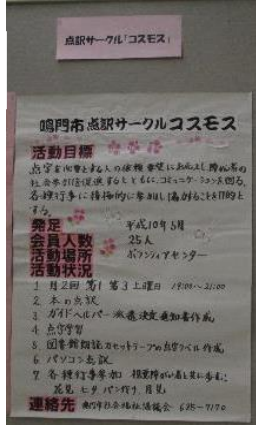 点訳サークル「コスモス」
鳴門市点訳サークルコスモス
活動目標
点字を必要とする人の依頼、要望にお応えし、障がい者の
社会参加を促進するとともに、コミュニケーションを図る。
各種行事に積極的に参加し協力することを目的と
する。
発足 平成10年5月
会員人数 25人
活動場所 ボランティアセンター
活動状況
1. 月2回 第1 第3土曜日 19:00~21:00
2. 本の点訳
3. ガイドヘルパー派遣決定通知書作成
4. 点字学習
5. 図書館朗読カセットテープの点字ラベル作成
6. パソコン点訳
7. 各種行事参加 視覚障がい者と共に歩む
花見 七夕 パン作り 月見
連絡先 鳴門市社会福祉協議会 685-7170